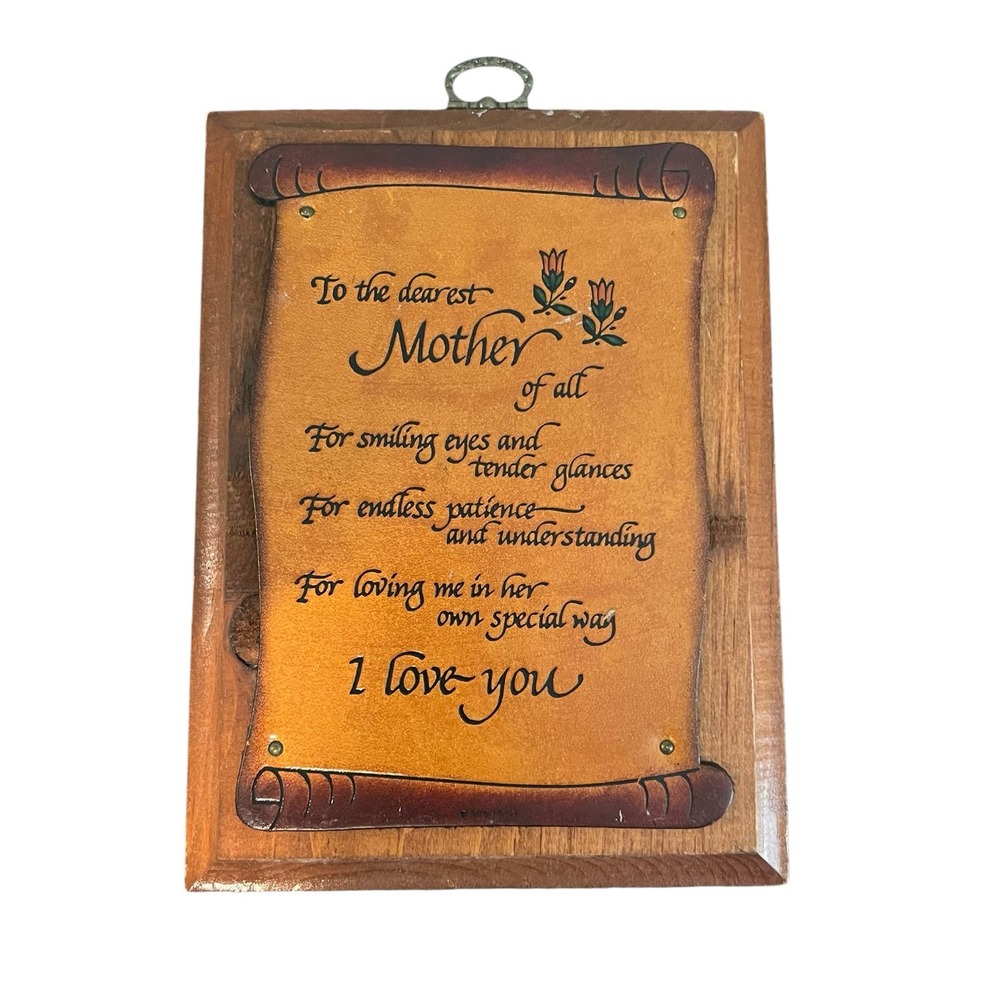 To the dearest
Mother
of all
For smiling eyes and
tender glances
For endless patience
and understanding
For loving me in her
own special way
I love you